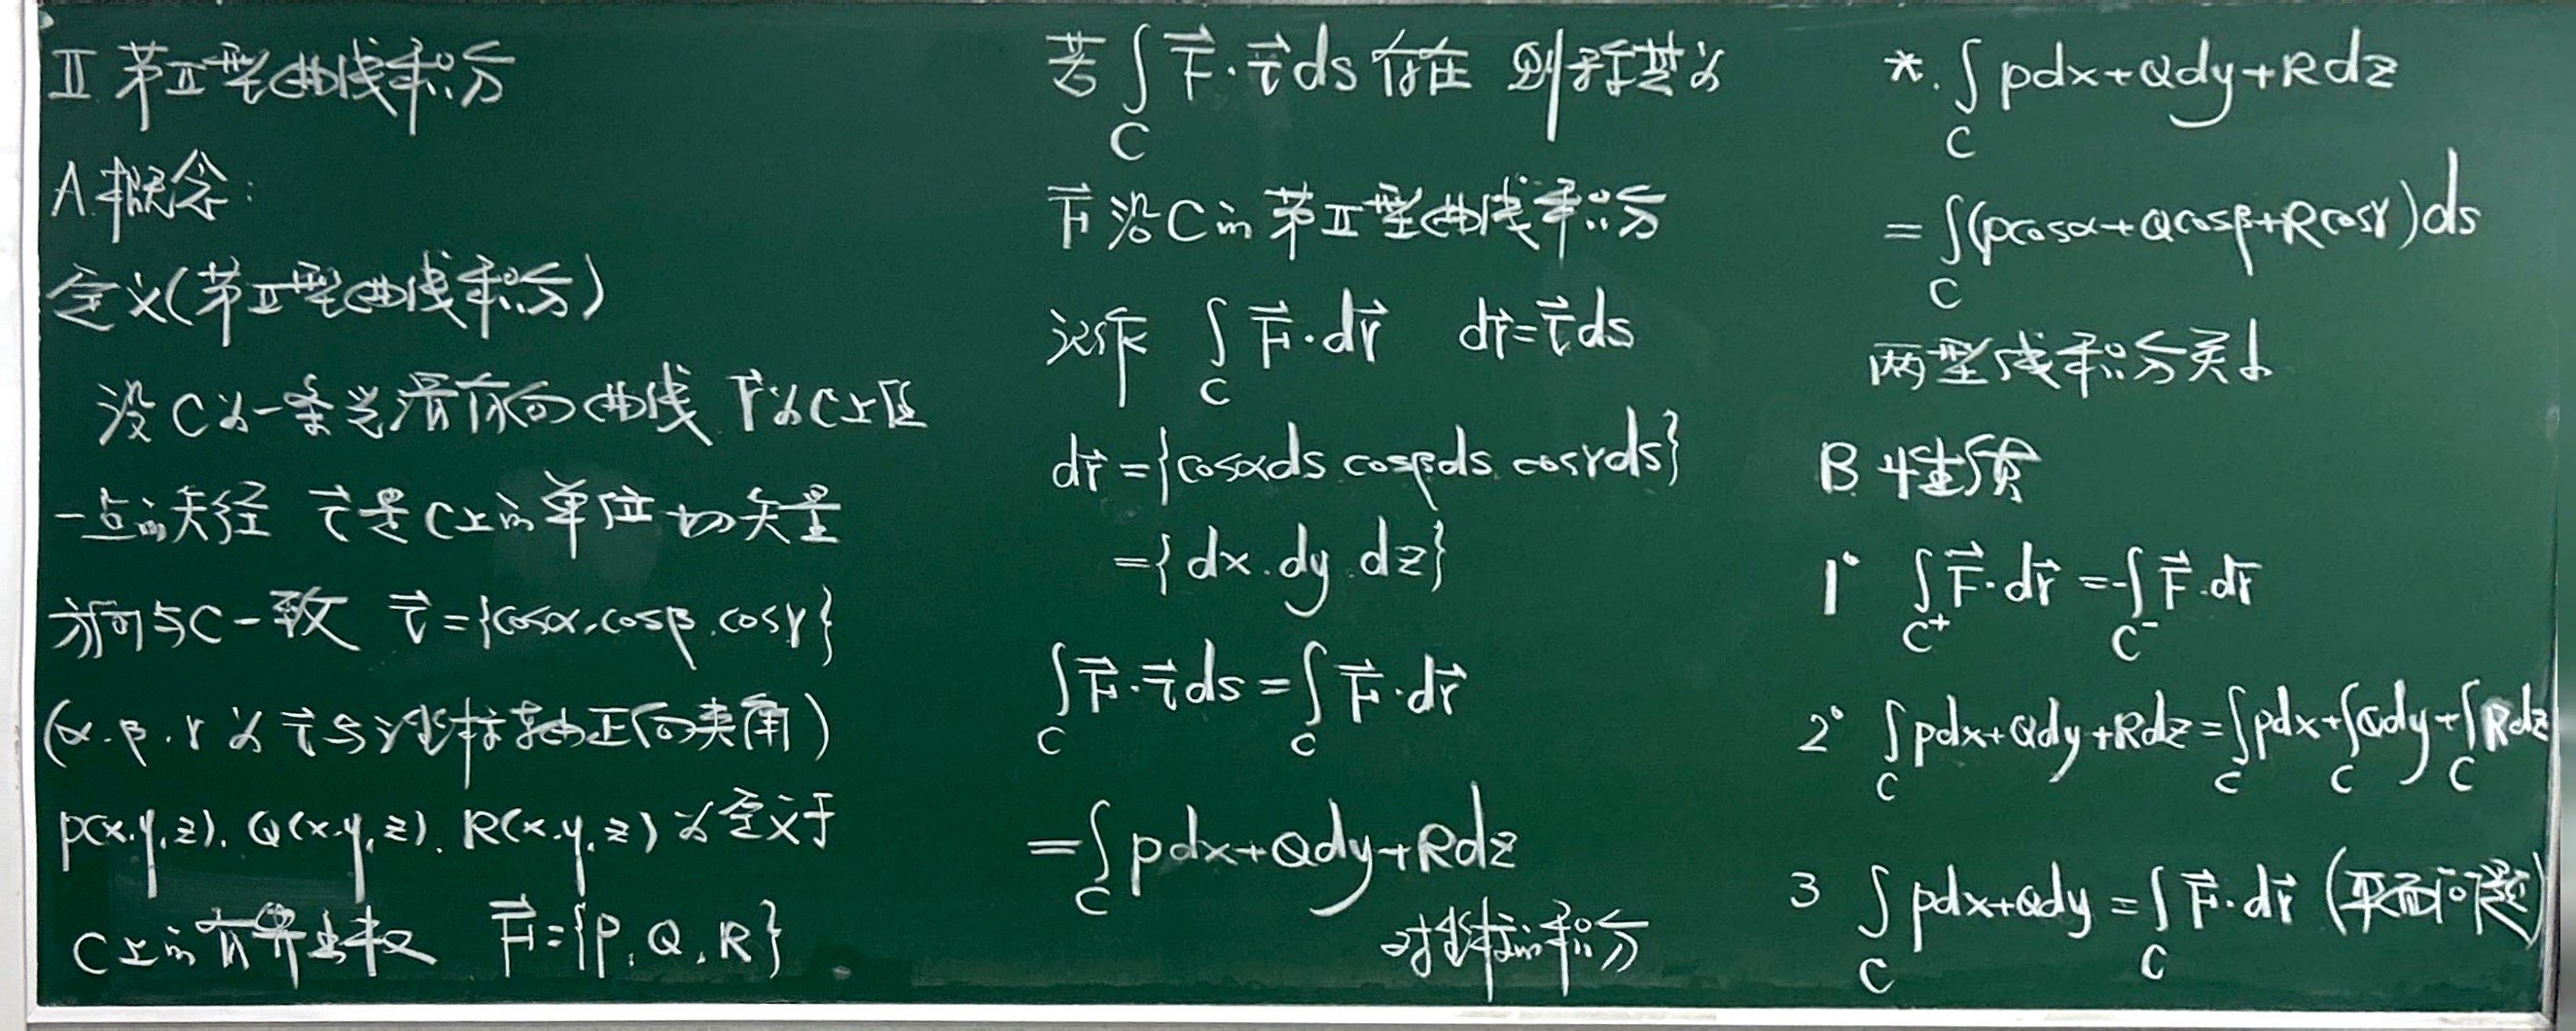 Ⅱ 第Ⅱ型曲线积分
A.概念:
定义(第Ⅱ型曲线积分)
设C为一条光滑有向曲线 r⃗为C上任
一点的矢径 τ⃗是C上的单位切矢量
方向与C一致 τ⃗={cosα,cosβ,cosγ}
(α.β.γ为τ⃗与 坐标轴正向夹角)
P(x,y,z). Q(x,y,z). R(x,y,z)为定义于
C上的有界函数 F⃗={P,Q,R}
若∫_C F⃗·τ⃗ds存在 则称其为
F⃗沿C的第Ⅱ型曲线积分
记作 ∫_C F⃗·dr⃗ dr⃗=τ⃗ds
dr⃗={cosαds cosβds cosγds}
={dx.dy.dz}
∫_C F⃗·τ⃗ds=∫_C F⃗·dr⃗
=∫_C Pdx+Qdy+Rdz
对坐标的积分
*.∫_C Pdx+Qdy+Rdz
=∫_C(Pcosα+Qcosβ+Rcosγ)ds
两型线积分关系
B 性质
1° ∫_{C⁺}F⃗·dr⃗=-∫_{C⁻}F⃗·dr⃗
2° ∫_C Pdx+Qdy+Rdz=∫_C Pdx+∫_C Qdy+∫_C Rdz
3 ∫_C Pdx+Qdy=∫_C F⃗·dr⃗ (平面问题)